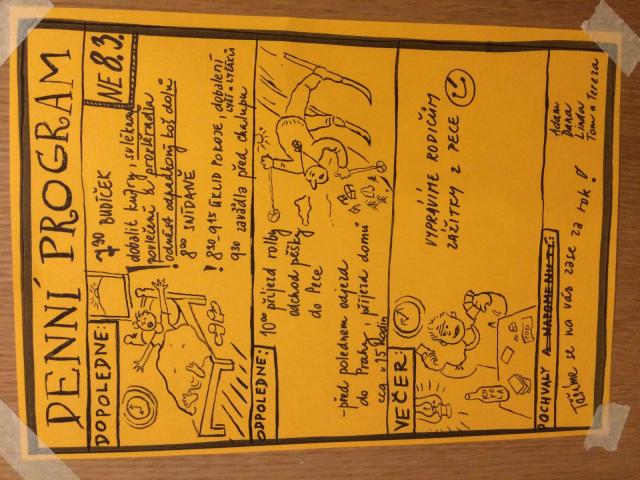 DENNÍ PROGRAM
NE 8.3.
DOPOLEDNE:
7³⁰ BUDÍČEK
! dobalit kufry, svléknout
povlečení a prostěradla
odnést odpadkový koš dolů
8⁰⁰ SNÍDANĚ
! 8³⁰ 9¹⁵ ÚKLID POKOJE, dobalení
LYŽÍ A LYŽÁKŮ
9³⁰ zavádla před chalupu
ODPOLEDNE:
10⁰⁰ příjezd rolby
odchod pěšky
do Pece
- před polednem odjezd
do Prahy, příjezd domů
cca v 15 hodin
VEČER:
VYPRÁVÍME RODIČŮM
ZÁŽITKY Z PECE
KOFOLA
POCHVALY A NAPOMENUTÍ:
Těšíme se na vás zase za rok!
Adam
Dana
Linda
Tom a Tereza